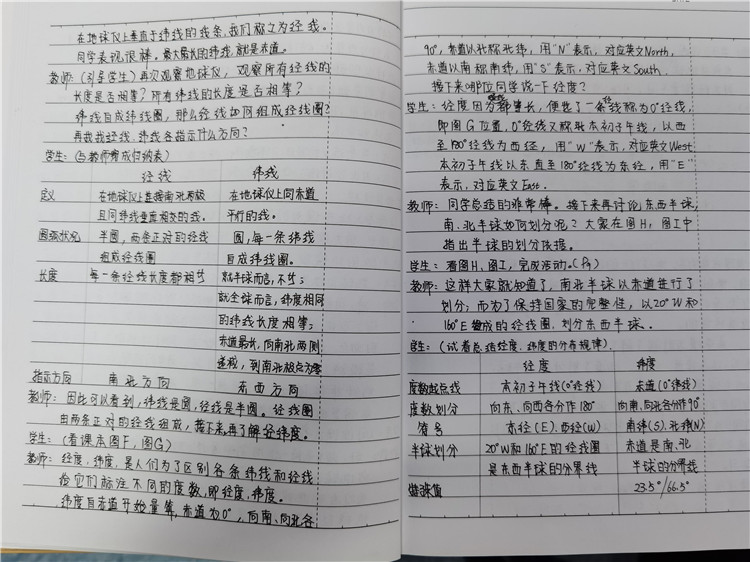 在地球仪上垂直于纬线的线条,我们称之为经线。
同学表现很棒。最大最长的纬线,就是赤道。
教师:(引导学生)再次观察地球仪,观察所有经线的
长度是否相等?所有纬线的长度是否相等?
纬线自成纬线圈,那么经线如何组成经线圈?
再找找经线、纬线各指示什么方向?
学生:(与教师完成归纳表)
经线 纬线
定义 在地球仪上连接南北两极 在地球仪上同赤道
且同纬线垂直相交的线。 平行的线。
圆弧状况 半圆,两条正对的经线 圆,每一条纬线
组成经线圈 自成纬线圈。
长度 每一条经线长度都相等 就半球而言,不等;
就全球而言,纬度相同
的纬线长度相等;
赤道最长,向南北两侧
递减,到南北极点为零
指示方向 南北方向 东西方向
教师:因此可以看到,纬线是圆,经线是半圆。经线圈
由两条正对的经线组成,接下来再了解经纬度。
学生:(看课本图F,图G)
教师:经度,纬度,是人们为了区别各条纬线和经线
给它们标注不同的度数,即经度,纬度。
纬度自赤道开始量算,赤道为0°,向南、向北各
90°,赤道以北称北纬,用"N"表示,对应英文North,
赤道以南称南纬,用"S"表示,对应英文South.
接下来哪位同学说一下经度?
学生:经度因为都等长,便选了一条线称为0°经线,
即图G位置,0°经线又称张本初子午线,以西
至180°经线为西经,用"W"表示,对应英文West
本初子午线以东直至180°经线为东经,用"E"
表示,对应英文East.
教师:同学总结的非常棒。接下来再讨论东西半球,
南、北半球如何划分呢?大家在图H,图I中
指出半球的划分依据。
学生:看图H、图I,完成活动。
教师:这样大家就知道了,南北半球以赤道进行了
划分;而为了保持国家的完整性,以20°W和
160°E组成的经线圈,划分东西半球.
学生:(试着总结经度、纬度的分布规律).
经度 纬度
度数起点线 本初子午线(0°经线) 赤道(0°纬线)
度数划分 向东、向西各分作180° 向南、向北各分作90°
符号 东经(E)、西经(W) 南纬(S)、北纬(N)
半球划分 20°W和160°E的经线圈 赤道是南、北
是东西半球的分界线 半球的分界线
特殊值 23.5°/66.5°